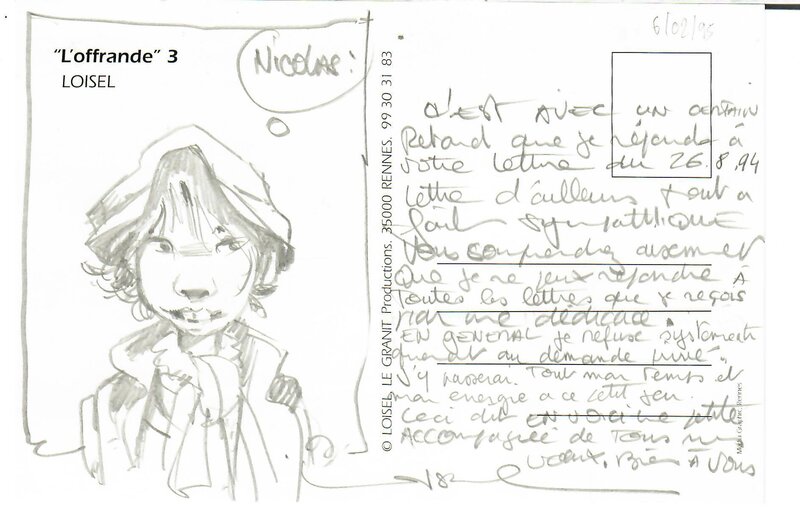 "L'offrande" 3
LOISEL
NICOLAS:
© LOISEL, LE GRANIT Productions. 35000 RENNES. 99 30 31 83
6/02/95
C'EST AVEC UN CERTAIN
Retard que je réponds à
votre lettre du 26.8.94
lettre d'ailleurs tout à
fait SYMPATHIQUE
Vous comprendrez aisement
Que je ne peux répondre À
Toutes les lettres que je reçois
par une dédicace.
EN GENERAL je refuse
quant au demande privé
J'y passerai Tout mon Temps et
mon energie a ce petit jeu.
Ceci dit EN VOICI une petite
ACCOMPAGNÉE de Tous mes
voeux, Bien À Vous